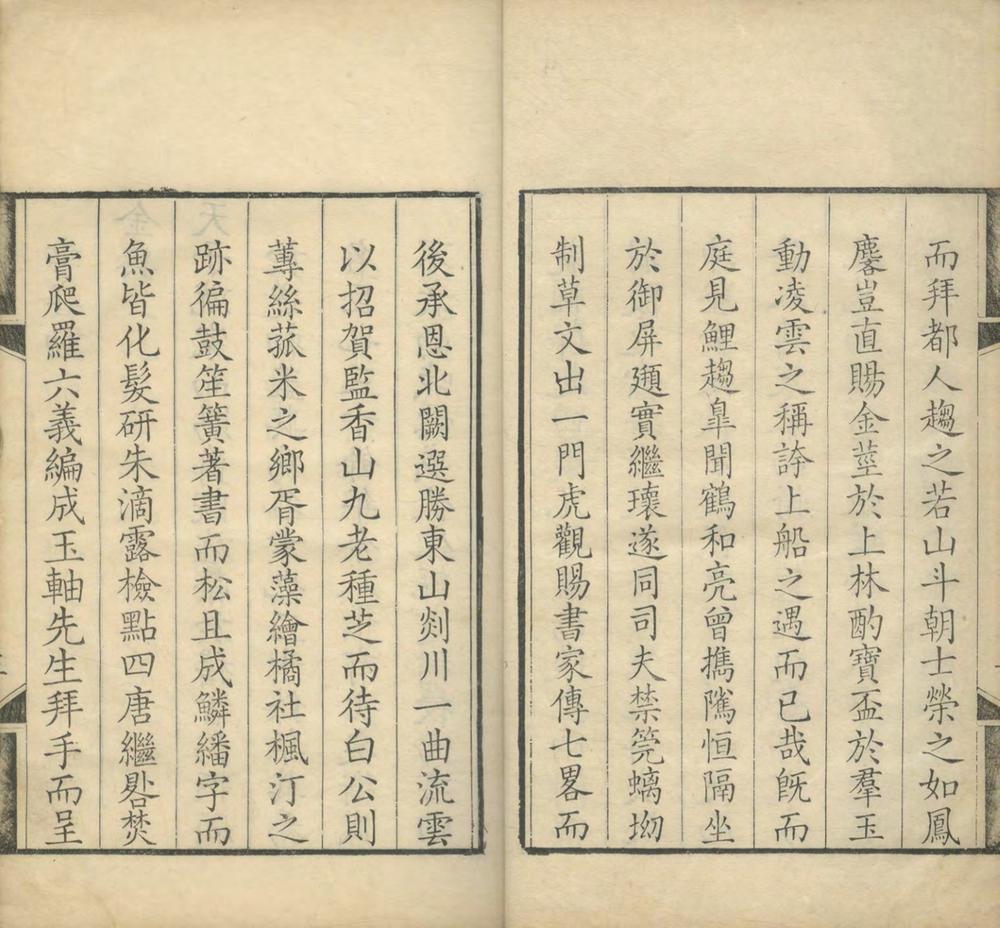 而拜都人趨之若山斗朝士榮之如鳳
麐豈直賜金莖於上林酌寶盃於羣玉
動凌雲之稱誇上船之遇而已哉旣而
庭見鯉趨皐聞鶴和亮曾攜隲恒隔坐
於御屏頲實繼瓌遂同司夫禁筦螭坳
制草文出一門虎觀賜書家傳七畧而
後承恩北闕選勝東山剡川一曲流雲
以招賀監香山九老種芝而待白公則
蓴絲菰米之鄉胥蒙藻繪橘社楓汀之
跡徧鼓笙簧著書而松且成鱗繙字而
魚皆化髮研朱滴露檢點四唐繼晷焚
膏爬羅六義編成玉軸先生拜手而呈